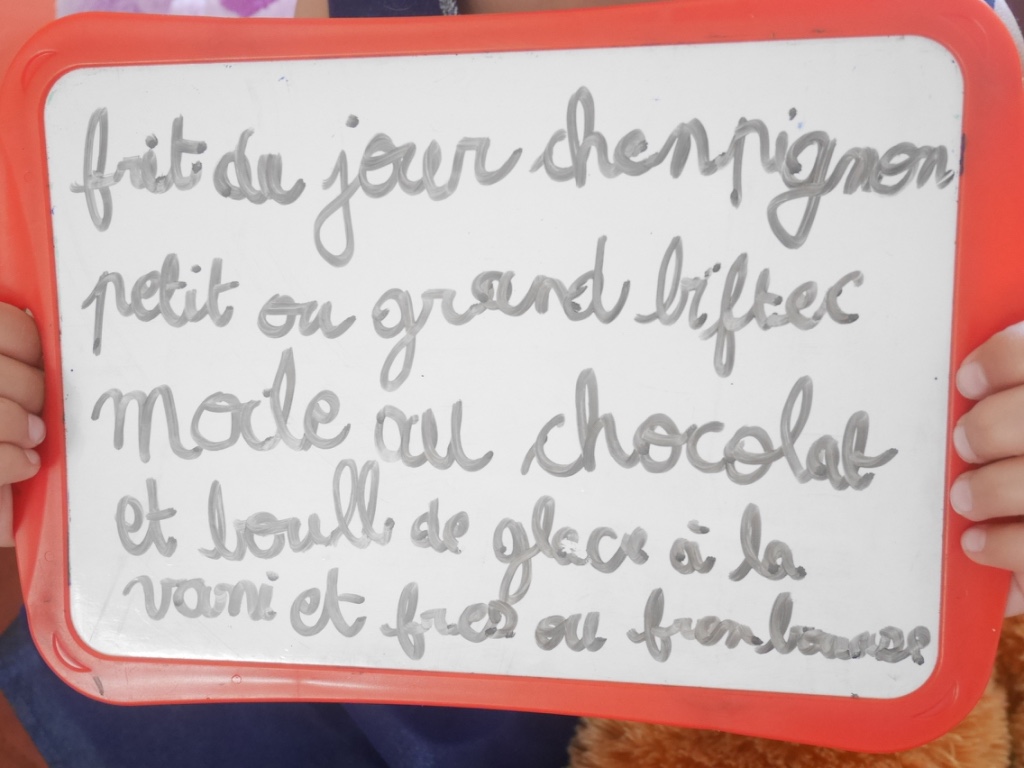 frit du jour chanpignon
petit ou grand biftec
mode au chocolat
et boull de glace à la
vani et fres ou franbouase